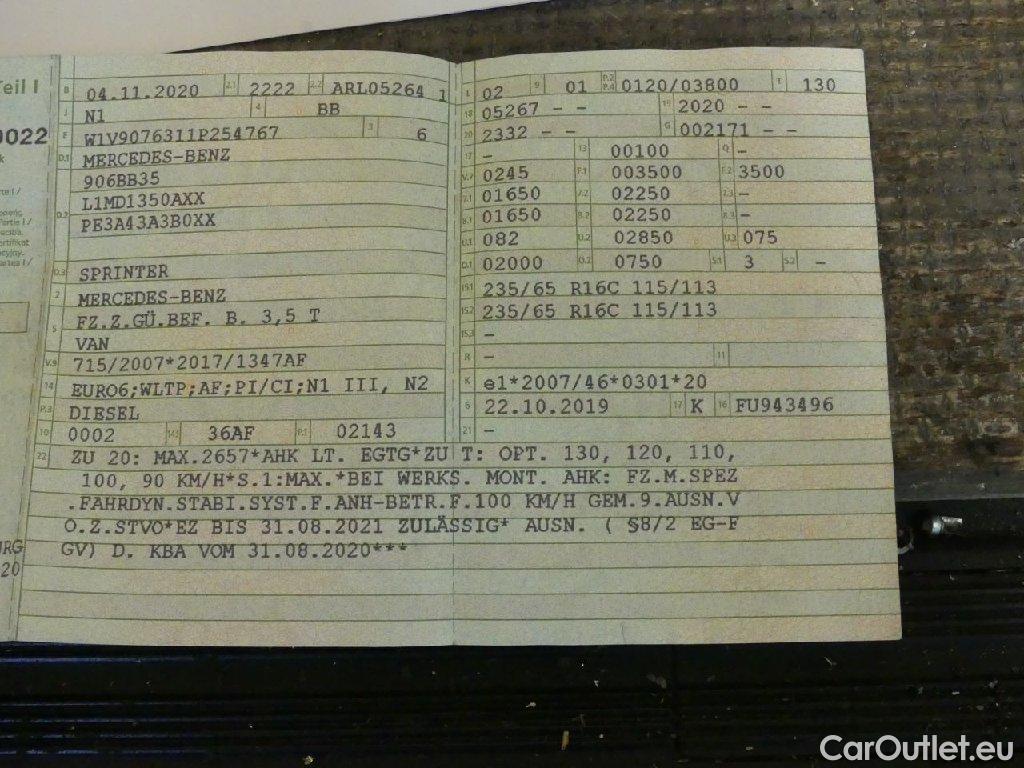 Teil I
0022
B 04.11.2020 2.1 2222 2.2 ARL05264 1
J N1 4 BB
E W1V9076311P254767 3 6
D.1 MERCEDES-BENZ
906BB35
D.2 L1MD1350AXX
PE3A43A3B0XX
D.3 SPRINTER
2 MERCEDES-BENZ
5 FZ.Z.GÜ.BEF. B. 3,5 T
VAN
V.9 715/2007*2017/1347AF
14 EURO6;WLTP;AF;PI/CI;N1 III, N2
P.3 DIESEL
10 0002 14.1 36AF P.1 02143
L 02 9 01 P.2 P.4 0120/03800 T 130
18 05267 - - 19 2020 - -
20 2332 - - G 002171 - -
17 - 13 00100 Q -
V.7 0245 F.1 003500 F.2 3500
7.1 01650 7.2 02250 7.3 -
8.1 01650 8.2 02250 8.3 -
U.1 082 U.2 02850 U.3 075
O.1 02000 O.2 0750 S.1 3 S.2 -
15.1 235/65 R16C 115/113
15.2 235/65 R16C 115/113
15.3 -
R - 11
K e1*2007/46*0301*20
6 22.10.2019 17 K 16 FU943496
21 -
22 ZU 20: MAX.2657*AHK LT. EGTG*ZU T: OPT. 130, 120, 110,
100, 90 KM/H*S.1:MAX.*BEI WERKS. MONT. AHK: FZ.M.SPEZ
.FAHRDYN.STABI.SYST.F.ANH-BETR.F.100 KM/H GEM.9.AUSN.V
O.Z.STVO*EZ BIS 31.08.2021 ZULÄSSIG* AUSN. ( §8/2 EG-F
GV) D. KBA VOM 31.08.2020***
URG
20
CarOutlet.eu